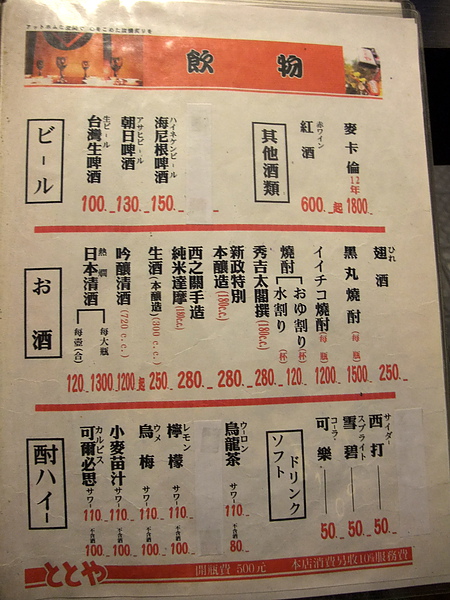 アットホームな空間で 心をこめたお料理を
飲物
ビール
生ビール
台灣生啤酒 100.
アサヒビール
朝日啤酒 130.
ハイネケンビール
海尼根啤酒 150.
其他酒類
赤ワイン
紅酒 600.起
麥卡倫 12年 1800.
お酒
熱燗
日本清酒
每壺(合) 120
每大瓶 1300
吟釀清酒(720 c.c.) 1200起
生酒(本釀造)(300 c.c.) 250.
純米達摩(180c.c)
西之關手造 280.
本釀造(180c.c)
新政特別 280.
秀吉太閤撰(180c.c) 280.
燒酎
水割り
おゆ割り(杯)
(杯) 120
イイチコ燒酎(每瓶) 1200
黑丸燒酎(每瓶) 1500
ひれ
翅酒 250.
酎ハイー
カルピス
可爾必思サワー 110. 不含酒 100.
小麥苗汁サワー 110. 不含酒 100.
ウメ
烏梅サワー 110. 不含酒 100.
レモン
檸檬サワー 110. 不含酒 100.
ウーロン
烏龍茶 110. 不含酒 80.
ソフトドリンク
コーラ
可樂 50.
スプライト
雪碧 50.
サイダー
西打 50.
ととや
開瓶費 500元
本店消費另收10%服務費